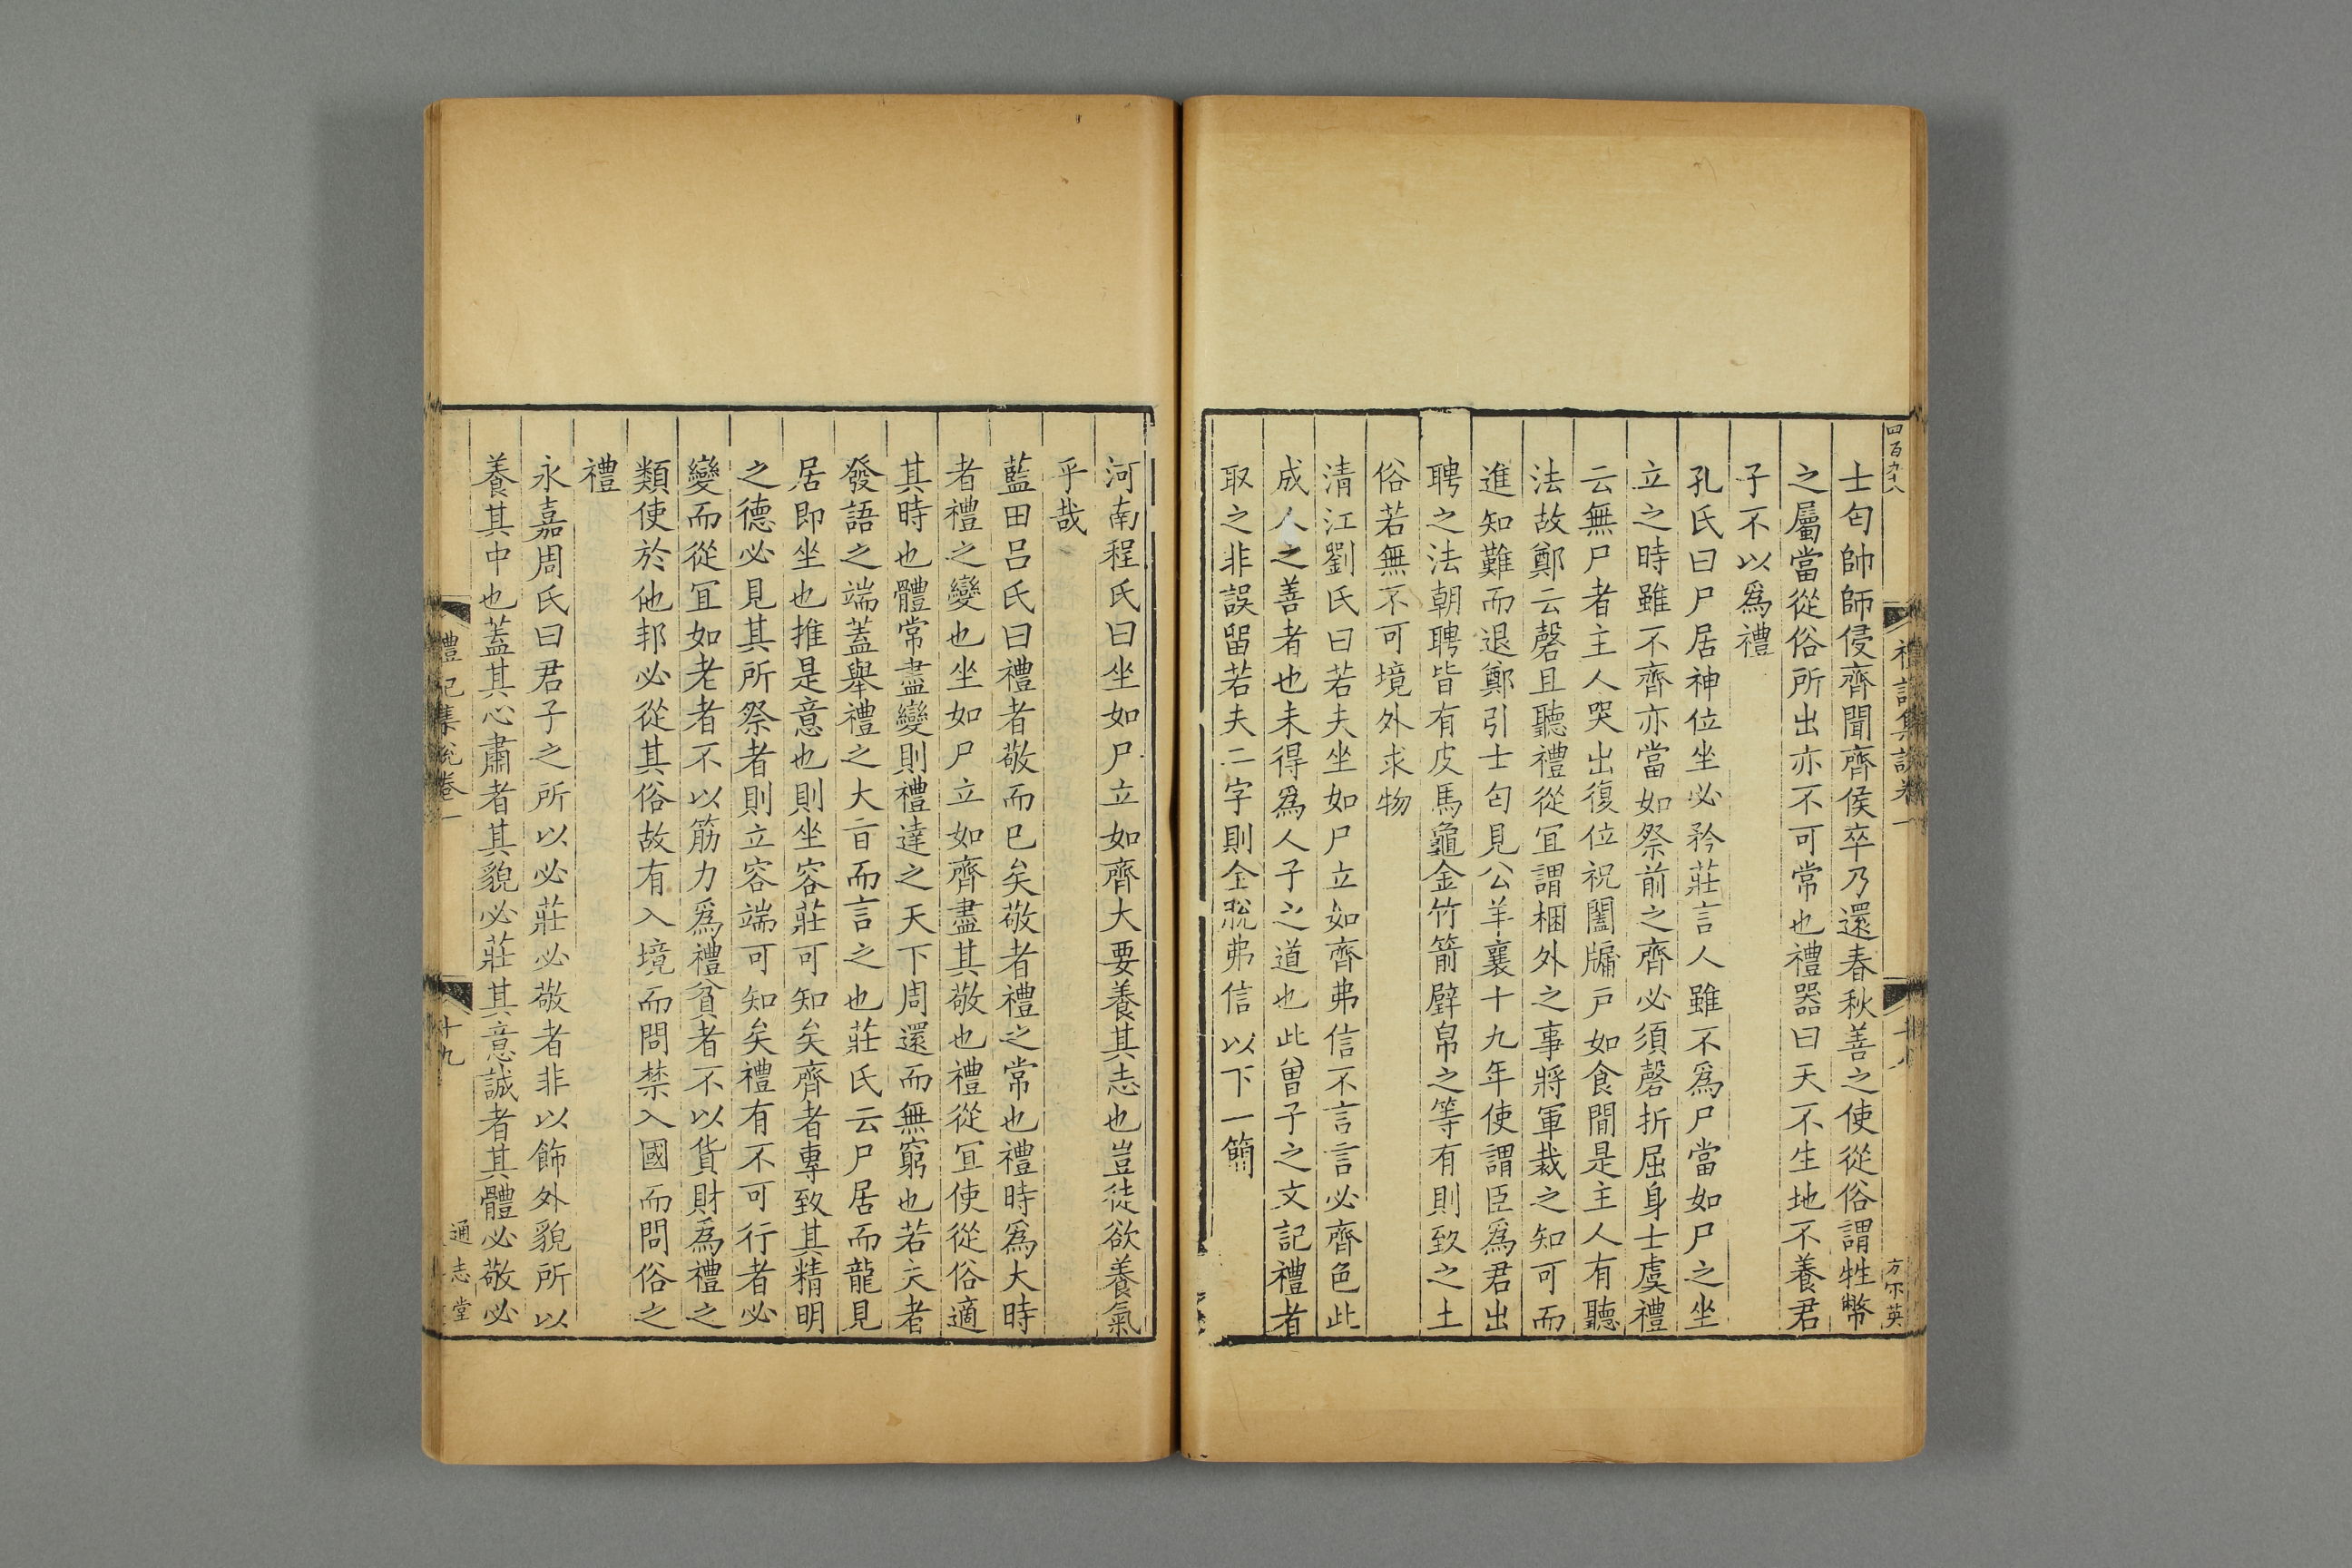 四百九十八
禮記集說卷一
十八
方尔英
士匄帥師侵齊聞齊侯卒乃還春秋善之使從俗謂牲幣
之屬當從俗所出亦不可常也禮器曰天不生地不養君
子不以爲禮
孔氏曰尸居神位坐必矜莊言人雖不爲尸當如尸之坐
立之時雖不齊亦當如祭前之齊必須磬折屈身士虞禮
云無尸者主人哭出復位祝闔牖戸如食間是主人有聽
法故鄭云磬且聽禮從宜謂梱外之事將軍裁之知可而
進知難而退鄭引士匄見公羊襄十九年使謂臣爲君出
聘之法朝聘皆有皮馬龜金竹箭璧帛之等有則致之土
俗若無不可境外求物
清江劉氏曰若夫坐如尸立如齊弗信不言言必齊色此
成人之善者也未得爲人子之道也此曾子之文記禮者
取之非誤留若夫二字則全脫弗信以下一簡
河南程氏曰坐如尸立如齊大要養其志也豈徒欲養氣
乎哉
藍田呂氏曰禮者敬而已矣敬者禮之常也禮時爲大時
者禮之變也坐如尸立如齊盡其敬也禮從宜使從俗適
其時也體常盡變則禮達之天下周還而無窮也若夫者
發語之端蓋舉禮之大盲而言之也莊氏云尸居而龍見
居即坐也推是意也則坐容莊可知矣齊者專致其精明
之德必見其所祭者則立容端可知矣禮有不可行者必
變而從宜如老者不以筋力爲禮貧者不以貨財爲禮之
類使於他邦必從其俗故有入境而問禁入國而問俗之
禮
永嘉周氏曰君子之所以必莊必敬者非以飾外貌所以
養其中也蓋其心肅者其貌必莊其意誠者其體必敬必
禮記集說卷一
十九
通志堂